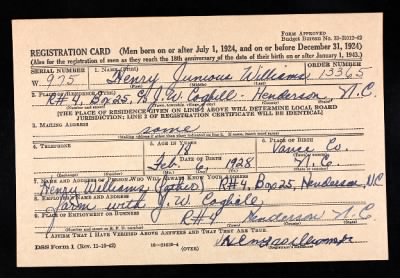 FORM APPROVED
Budget Bureau No. 33-R012-42
REGISTRATION CARD (Men born on or after July 1, 1924, and on or before December 31, 1924)
(Also for the registration of men as they reach the 18th anniversary of the date of their birth on or after January 1, 1943.)
SERIAL NUMBER 1. NAME (Print)
W 975 Henry Junious Williams 13365
2. PLACE OF RESIDENCE (Print)
R#4, Box 25, c/o J.W. Coghill - Henderson, N.C.
[THE PLACE OF RESIDENCE GIVEN ON LINE 2 ABOVE WILL DETERMINE LOCAL BOARD
JURISDICTION; LINE 2 OF REGISTRATION CERTIFICATE WILL BE IDENTICAL]
3. MAILING ADDRESS
same
4. TELEPHONE 5. AGE IN YEARS 6. PLACE OF BIRTH
18 Vance Co.
DATE OF BIRTH
Feb. 6, 1928 N.C.
7. NAME AND ADDRESS OF PERSON WHO WILL ALWAYS KNOW YOUR ADDRESS
Henry Williams (father) R#4, Box 25, Henderson, N.C
8. EMPLOYER'S NAME AND ADDRESS
Farm with J.W. Coghill
9. PLACE OF EMPLOYMENT OR BUSINESS
R#4 Henderson N.C.
I AFFIRM THAT I HAVE VERIFIED ABOVE ANSWERS AND THAT THEY ARE TRUE.
DSS Form 1 (Rev. 11-16-42) (OVER)